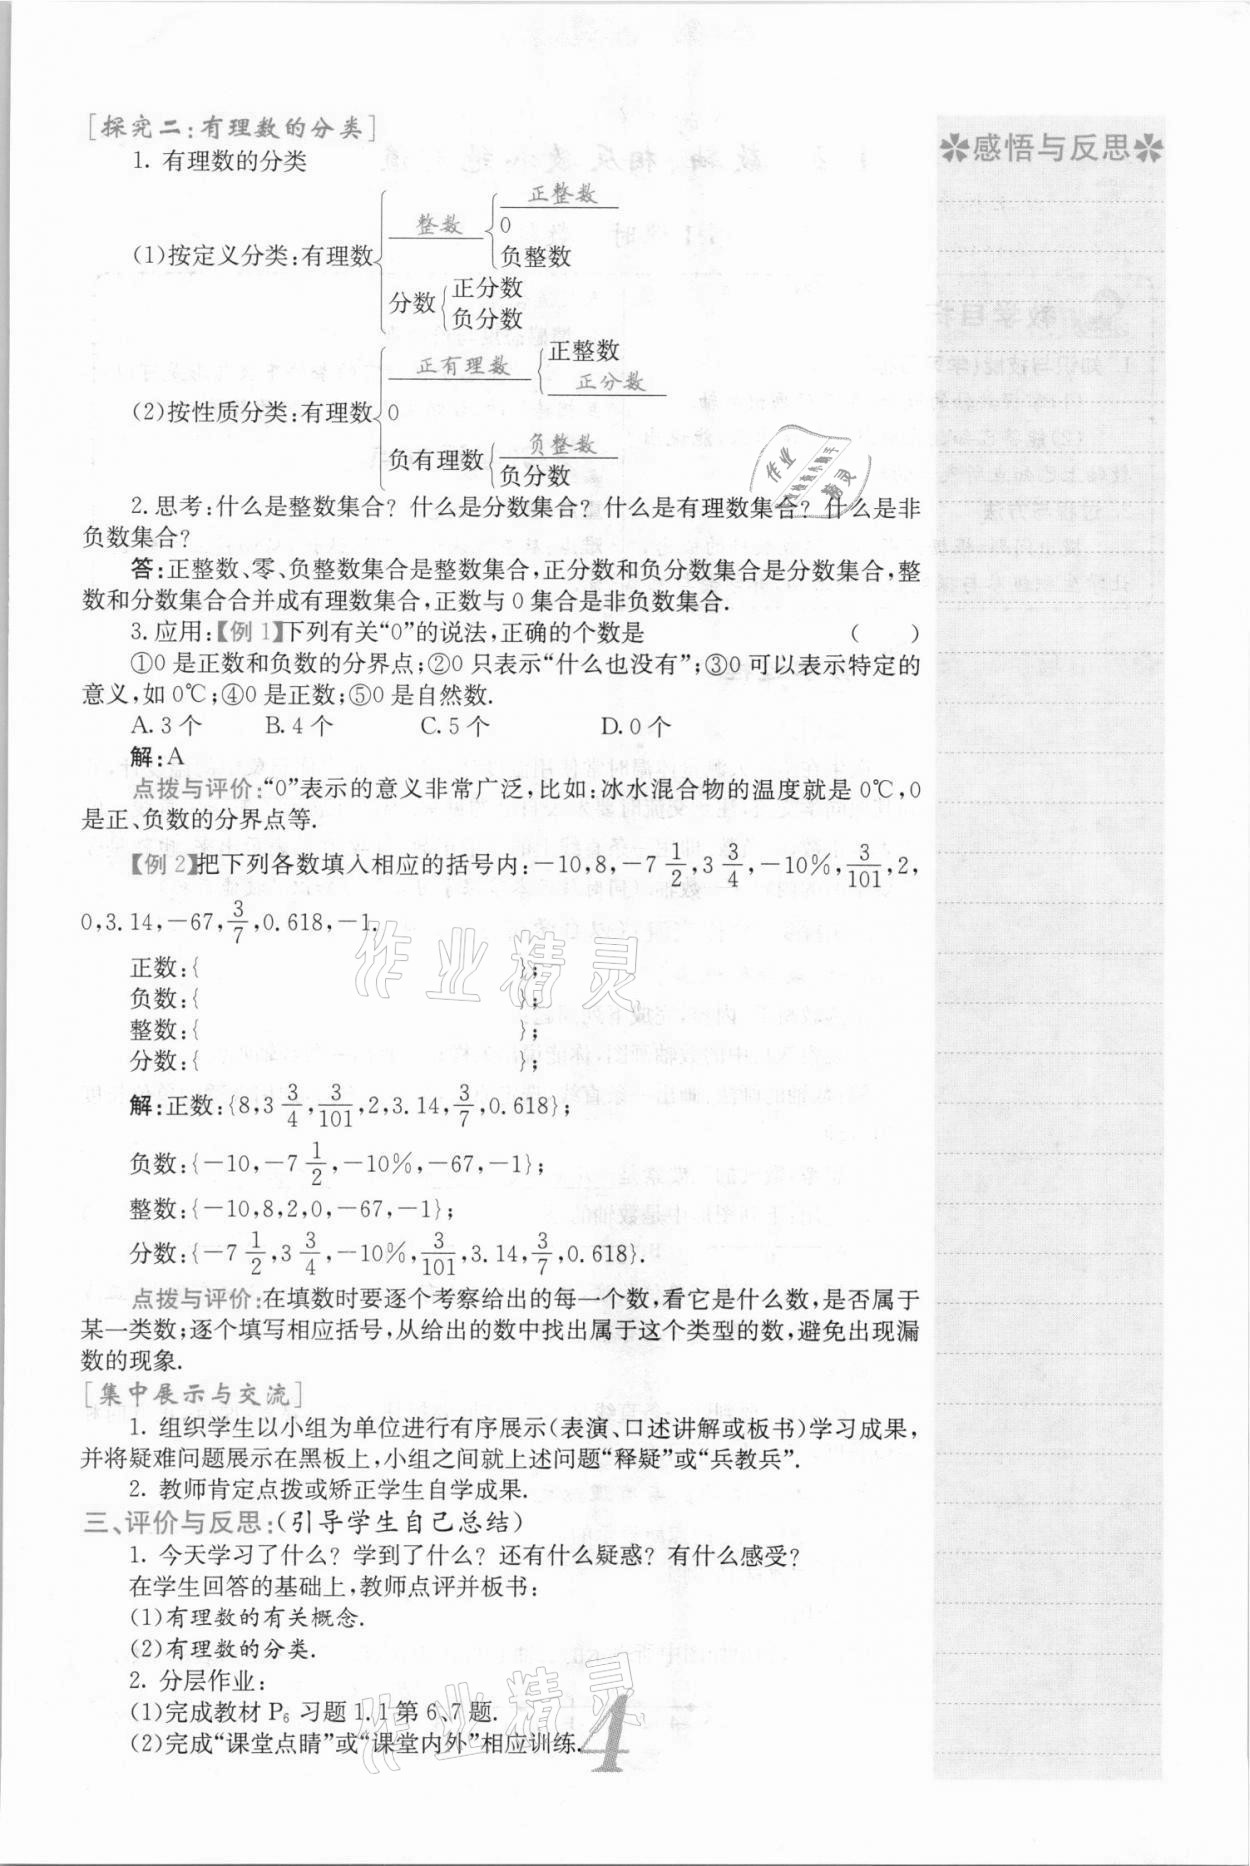 [探究二:有理数的分类]
✽感悟与反思✽
1. 有理数的分类
(1)按定义分类:有理数
整数
正整数
0
负整数
分数
正分数
负分数
(2)按性质分类:有理数
正有理数
正整数
正分数
0
负有理数
负整数
负分数
2. 思考:什么是整数集合? 什么是分数集合? 什么是有理数集合? 什么是非
负数集合?
答:正整数、零、负整数集合是整数集合,正分数和负分数集合是分数集合,整
数和分数集合合并成有理数集合,正数与 0 集合是非负数集合.
3. 应用:【例 1】下列有关“0”的说法,正确的个数是 ( )
①0 是正数和负数的分界点;②0 只表示“什么也没有”;③0 可以表示特定的
意义,如 0℃;④0 是正数;⑤0 是自然数.
A. 3 个 B. 4 个 C. 5 个 D. 0 个
解:A
点拨与评价:“0”表示的意义非常广泛,比如:冰水混合物的温度就是 0℃,0
是正、负数的分界点等.
【例 2】把下列各数填入相应的括号内:-10,8,-7 1/2,3 3/4,-10%,3/101,2,
0,3.14,-67,3/7,0.618,-1.
正数:{ };
负数:{ };
整数:{ };
分数:{ };
解:正数:{8,3 3/4,3/101,2,3.14,3/7,0.618};
负数:{-10,-7 1/2,-10%,-67,-1};
整数:{-10,8,2,0,-67,-1};
分数:{-7 1/2,3 3/4,-10%,3/101,3.14,3/7,0.618}.
点拨与评价:在填数时要逐个考察给出的每一个数,看它是什么数,是否属于
某一类数;逐个填写相应括号,从给出的数中找出属于这个类型的数,避免出现漏
数的现象.
[集中展示与交流]
1. 组织学生以小组为单位进行有序展示(表演、口述讲解或板书)学习成果,
并将疑难问题展示在黑板上,小组之间就上述问题“释疑”或“兵教兵”.
2. 教师肯定点拨或矫正学生自学成果.
三、评价与反思:(引导学生自己总结)
1. 今天学习了什么? 学到了什么? 还有什么疑惑? 有什么感受?
在学生回答的基础上,教师点评并板书:
(1)有理数的有关概念.
(2)有理数的分类.
2. 分层作业:
(1)完成教材 P6 习题 1.1 第 6、7 题.
(2)完成“课堂点睛”或“课堂内外”相应训练.
4
作业精灵
作业精灵